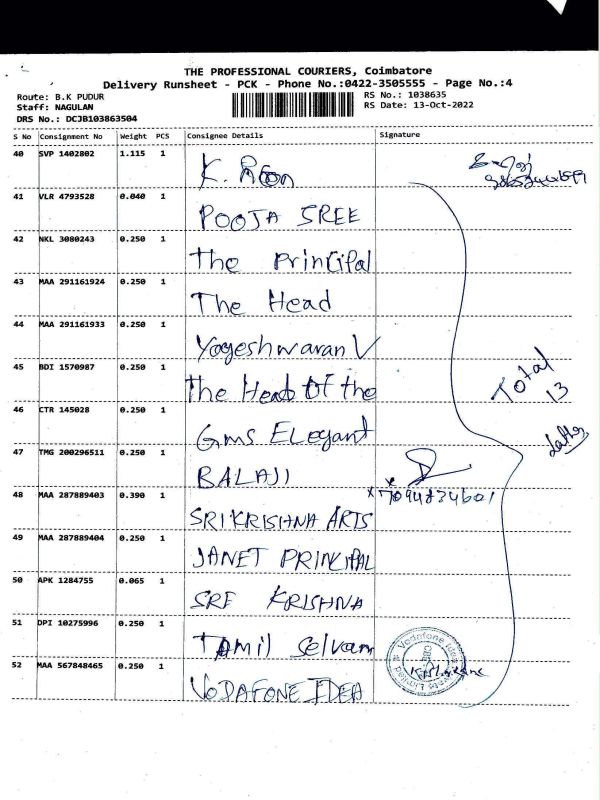 THE PROFESSIONAL COURIERS, Coimbatore
Delivery Runsheet - PCK - Phone No.:0422-3505555 - Page No.:4
Route: B.K PUDUR RS No.: 1038635
Staff: NAGULAN RS Date: 13-Oct-2022
DRS No.: DCJB103863504
S No Consignment No Weight PCS Consignee Details Signature
40 SVP 1402802 1.115 1 K.
41 VLR 4793528 0.040 1 POOJA SREE
42 NKL 3080243 0.250 1 The Principal
43 MAA 291161924 0.250 1 The Head
44 MAA 291161933 0.250 1 Yogeshwaran V
45 BDI 1570987 0.250 1 The Head Of the
Total
13
46 CTR 145028 0.250 1 Gms ELegant
47 TMG 200296511 0.250 1 BALAJI
7094834601
48 MAA 287889403 0.390 1 SRI KRISHNA ARTS
49 MAA 287889404 0.250 1 JANET PRINCIPAL
50 APK 1284755 0.065 1 SRE KRISHNA
51 DPI 10275996 0.250 1 TAmil Selvam
52 MAA 567848465 0.250 1 VODAFONE IDEA
Vodafone Idea Limited